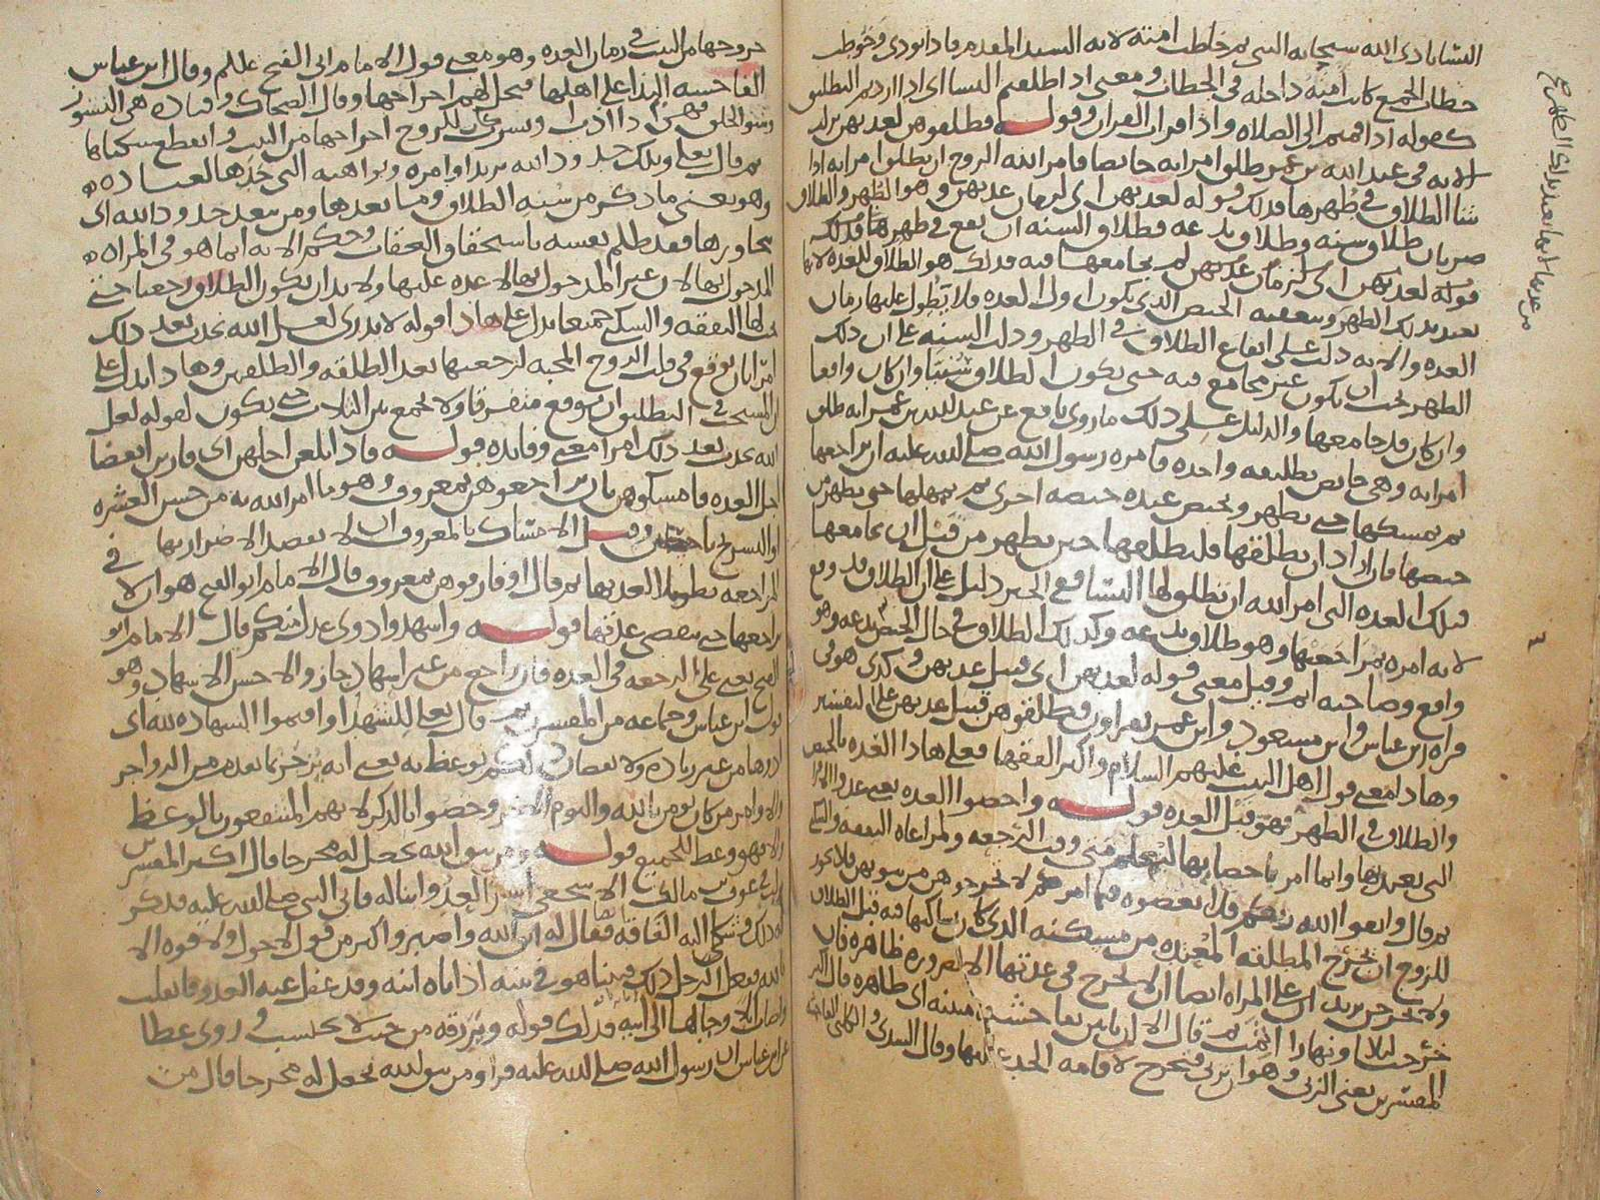 النسا نادى الله سبحانه النبي ثم خاطب امته لانه السيد المقدم فاذا نودي وخوطب
خطاب الجمع كانت امته داخله في الخطاب ومعنى اذا طلقتم النسا اي اذا اردتم التطليق
كقوله اذا قمتم الى الصلاه واذا قرات القران وقوله فطلقوهن لعدتهن نزلت
الايه في عبد الله بن عمر طلق امراته حايضا فامر الله الزوج ان يطلق امراته اذا
شا الطلاق في طهرها فذلك قوله لعدتهن اي لزمان عدتهن وهو الطهر والطلاق
ضربان طلاق سنه وطلاق بدعه فطلاق السنه ان يقع في طهرها فذلك
قوله لعدتهن اي لزمان عدتهن لم يجامعها فيه فذلك هو الطلاق للعده لانها
تعتد بذلك الطهر ويتعقبه الحيض الذي يكون اول العده فلا يطول عليها زمان
العده والايه دلت على ايقاع الطلاق في الطهر ودلت السنه على ان ذلك
الطهر يجب ان يكون غير مجامع فيه حتى يكون الطلاق سنيا وان كان واقعا
وان كان قد جامعها والدليل على ذلك ما روى نافع عن عبد الله بن عمر انه طلق
امراته وهي حايض تطليقه واحده فامره رسول الله صلى الله عليه ان يراجعها
ثم يمسكها حتى تطهر وتحيض عنده حيضه اخرى ثم يمهلها حتى تطهر من
حيضها فان اراد ان يطلقها فليطلقها حين تطهر من قبل ان يجامعها
فتلك العده التي امر الله ان تطلق لها النسا في الخبر دليل على ان الطلاق قد وقع
لانه امره بمراجعتها وهو طلاق بدعه وكذلك الطلاق في حال الحيض بدعه وهو
واقع وصاحبه اثم وقيل معنى قوله لعدتهن اي قبل عدتهن وكذى هو في
قراه ابن عباس وابن مسعود وابن عمر يقراون فطلقوهن قبل عدتهن على التفسير
وهاذا معنى قول اهل البيت عليهم السلام واكثر الفقها فعلى هاذا العده بالحيض
والطلاق في الطهر فهو قبل العده قوله واحصوا العده يعني عدد الاقرا
التي تعتد بها وانما امر باحصايها ليعلم متى وقت الرجعه ولمراعاه النفقه والسكنى
ثم قال واتقوا الله ربكم فلا تعصوه فيما امركم لا تخرجوهن من بيوتهن فلا يجوز
للزوج ان يخرج المطلقه المعتده من مسكنه الذي كان يساكنها فيه قبل الطلاق
ولا يخرجن يريد ان على المراه ايضا الا تخرج في عدتها الا لضروره ظاهره فان
خرجت ليلا او نهارا اثمت ثم قال الا ان ياتين بفاحشه مبينه اي ظاهره قال اكثر
المفسرين يعني الزنى وهو ان تزني فتخرج لاقامه الحد عليها وقال السدي والكلبي الفاحشه
خروجها من البيت في زمان العده وهو معنى قول الامام ابي الفتح عللم وقال ابن عباس
الفاحشه البذا على اهلها فيحل لهم اخراجها وقال الضحاك وقتاده هي النشوز
ثم قال تعلى وتلك حدود الله يريد اوامره ونواهيه التي حدها لعباده
وهو يعني ما ذكر من سنه الطلاق وما بعدها ومن يتعد حدود الله اي
يجاوزها فقد ظلم نفسه باستحقاق العقاب وحكم الايه انما هو في المراه
المدخول بها لان غير المدخول بها لا عده عليها ولا بد ان يكون الطلاق رجعيا حتى
يجب لها النفقه والسكنى جميعا يدل على هاذا قوله لا تدري لعل الله يحدث بعد ذلك
امرا بان يوقع في قلب الزوج المحبه لرجعتها بعد الطلقه والطلقتين وهاذا يدل على
ان المستحب في التطليق ان يوقع متفرقا ولا يجمع بين الثلاث حتى يكون لقوله لعل
الله يحدث بعد ذلك امرا معنى وفايده قوله فاذا بلغن اجلهن اي قاربن انقضا
اجل العده فامسكوهن بان تراجعوهن بمعروف وهو ما امر الله به من حسن العشره
او التسريح باحسان وقيل الامساك بالمعروف ان لا يقصد الاضرار بها في
المراجعه تطويلا لعدتها ثم قال او فارقوهن بمعروف وقال الامام ابو الفتح هو ان لا
يراجعها حتى تنقضي عدتها قوله واشهدوا ذوي عدل منكم قال الامام ابو
الفتح يعني على الرجعه في العده فان راجع من غير اشهاد جاز والاحسن الاشهاد وهو
قول ابن عباس وجماعه من المفسرين ثم قال تعلى للشهدا واقيموا الشهاده لله اي
ادوها من غير زياده ولا نقصان ذلكم يوعظ به يعني انه يزجر بما تقدم من الزواجر
والاوامر من كان يومن بالله واليوم الاخر وخصوا بالذكر لانهم المنتفعون بالوعظ
والا فهو وعظ للجميع قوله ومن يتق الله يجعل له مخرجا قال اكثر المفسرين
نزلت في عوف بن مالك الاشجعي اسر العدو ابنا له فاتى النبي صلى الله عليه فذكر
له ذلك وشكى اليه الفاقه فقال له اتق الله واصبر واكثر من قول لا حول ولا قوه الا
بالله ففعل الرجل ذلك فبينا هو في بيته اذ اتاه ابنه وقد غفل عنه العدو فانفلت
واصاب ابلا وجا بها الى ابيه فذلك قوله ويرزقه من حيث لا يحتسب وروى عطا
عن ابن عباس ان رسول الله صلى الله عليه قرا ومن يتق الله يجعل له مخرجا قال من